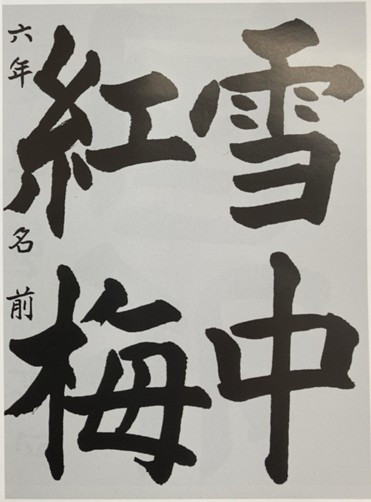 雪中
紅梅
六年 名前